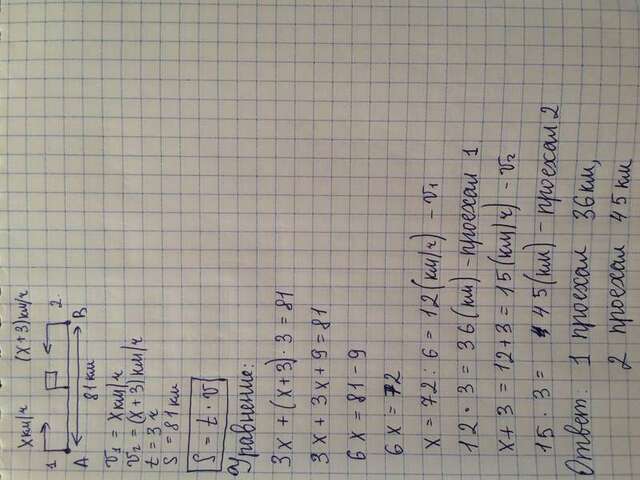 x км/ч (x+3) км/ч
1 2
A 81 км B
v₁ = x км/ч
v₂ = (x+3) км/ч
t = 3 ч
S = 81 км
S = t · v
Уравнение:
3x + (x+3) · 3 = 81
3x + 3x + 9 = 81
6x = 81 - 9
6x = 72
x = 72 : 6 = 12 (км/ч) - v₁
12 · 3 = 36 (км) - проехал 1
x + 3 = 12 + 3 = 15 (км/ч) - v₂
15 · 3 = 45 (км) - проехал 2
Ответ: 1 проехал 36 км,
2 проехал 45 км